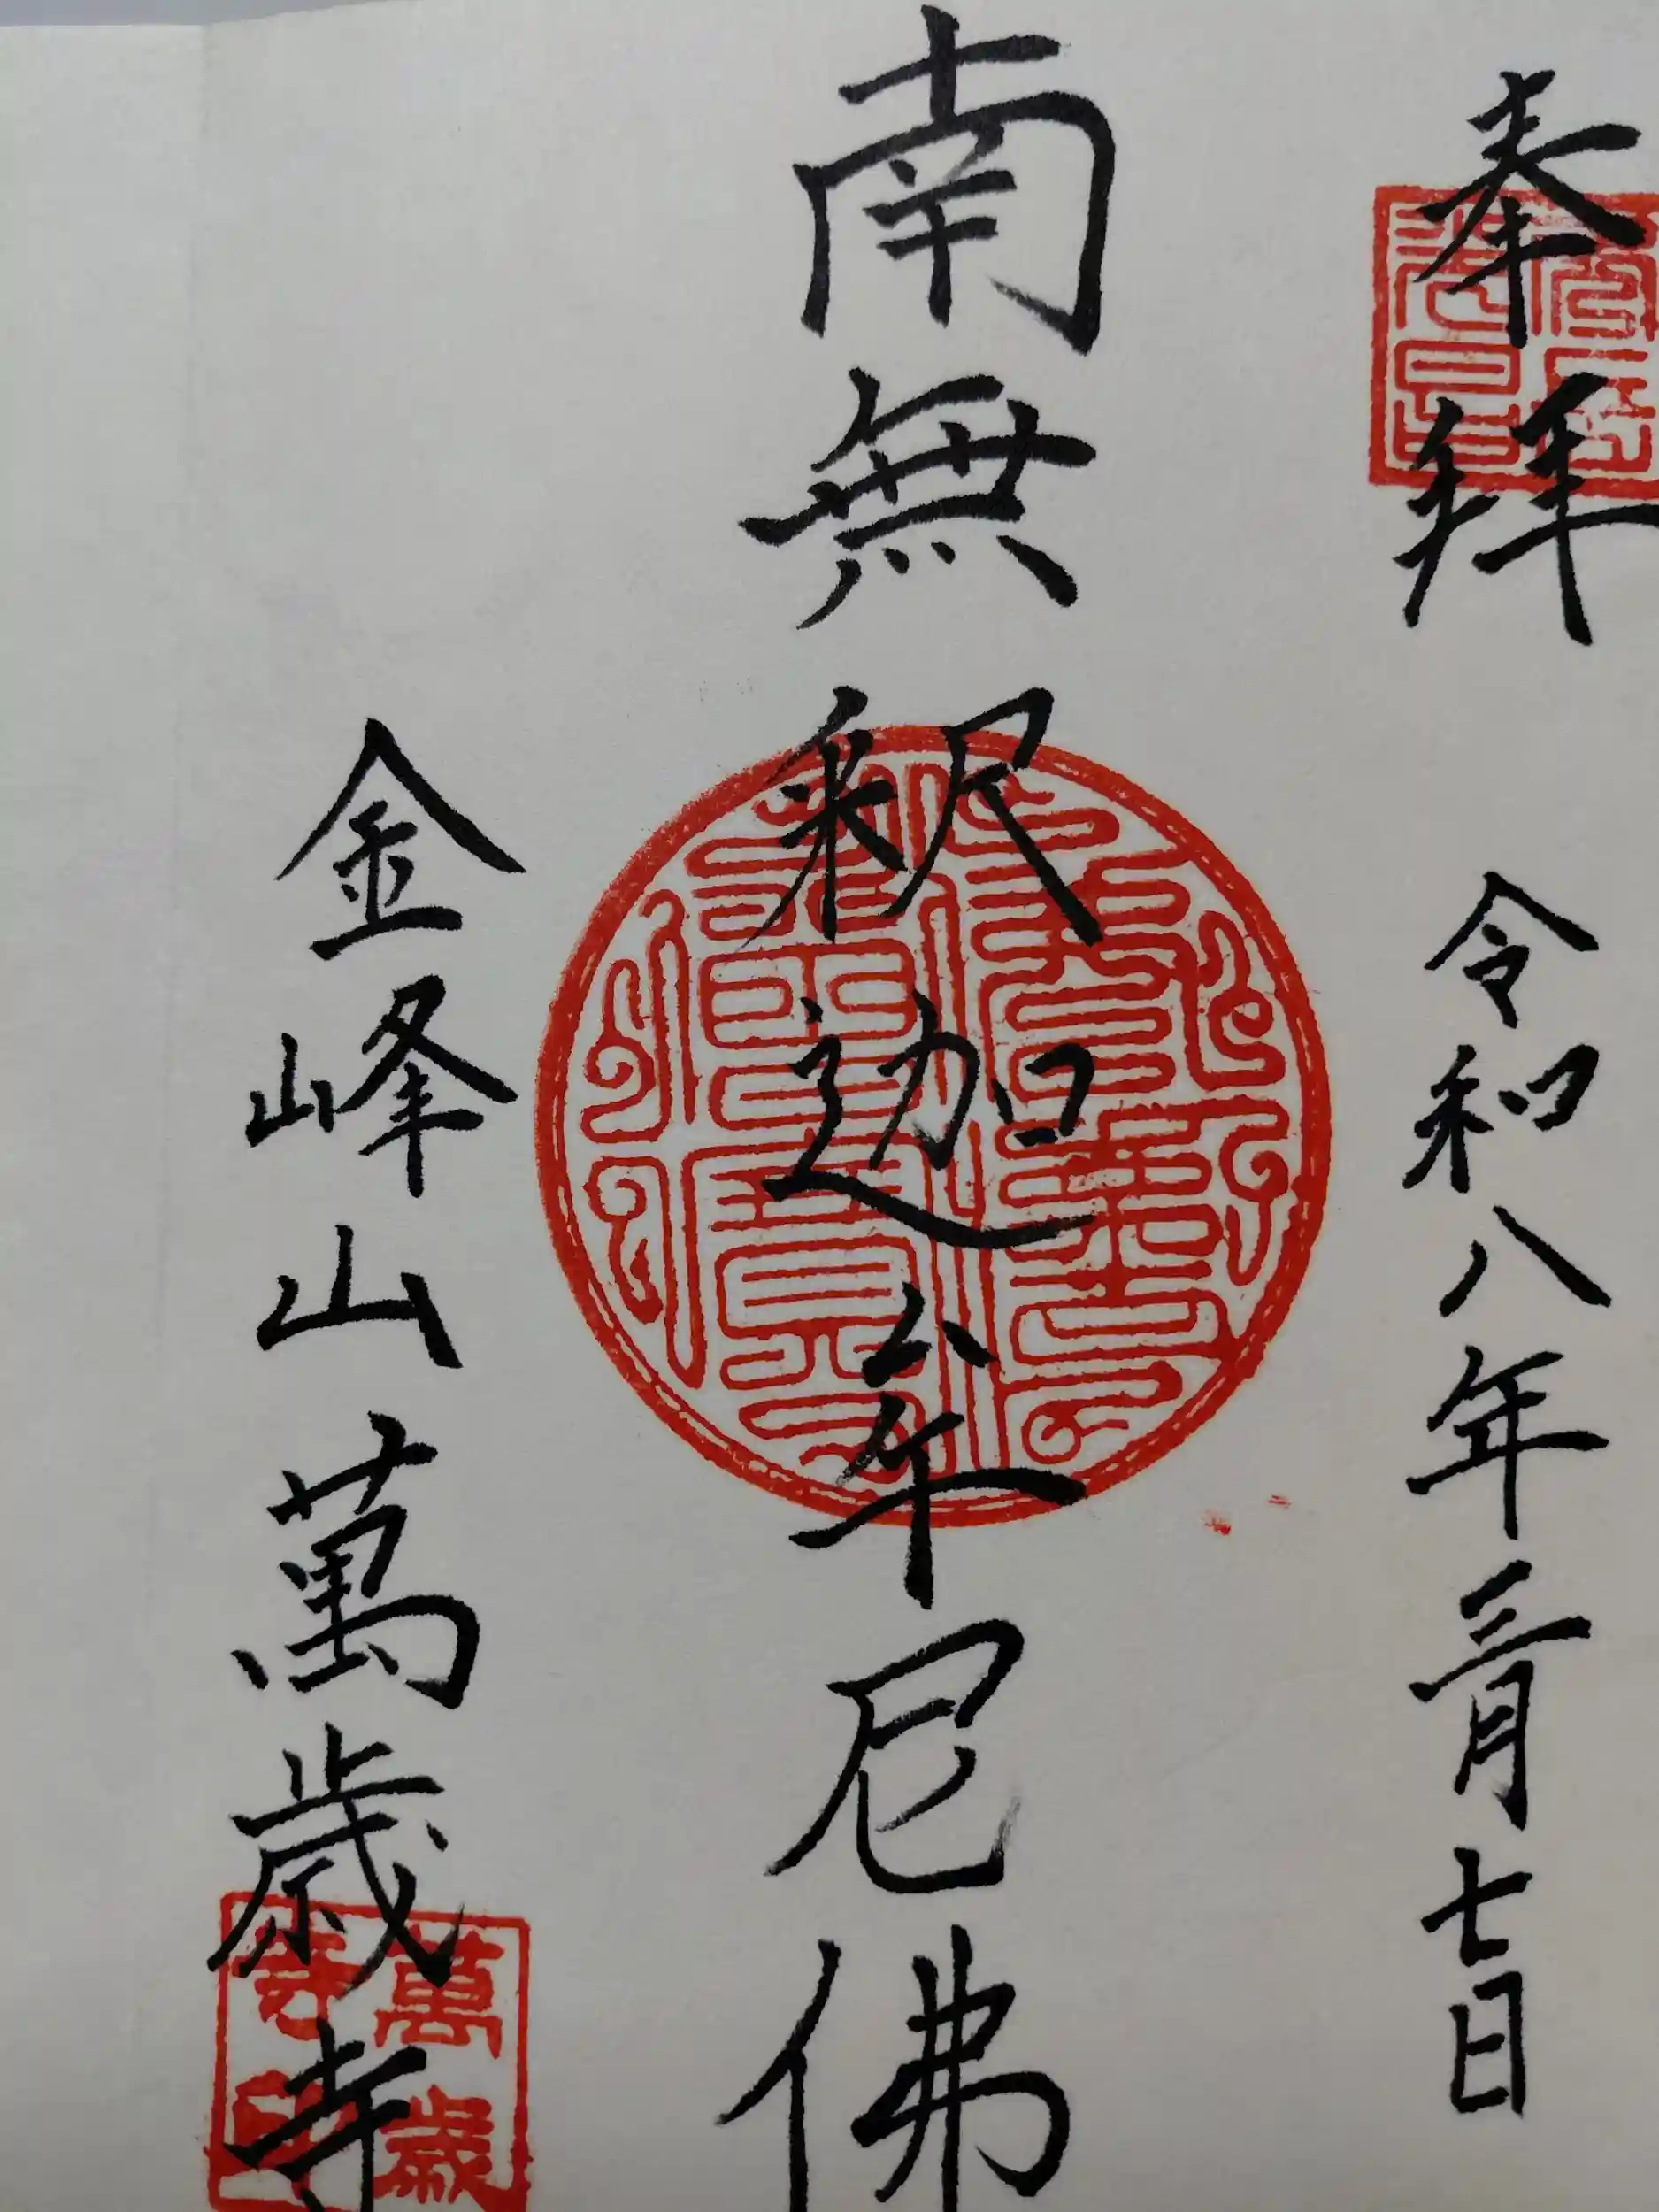 奉拝　令和八年三月七日
南無釈迦牟尼佛
金峰山萬歳寺
萬歳寺印